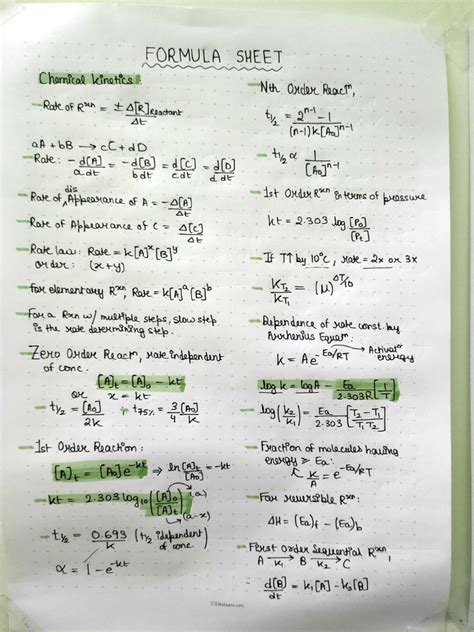 FORMULA SHEET
Chemical kinetics:
Rate of Rxn = ± Δ[R]Reactant / Δt
aA + bB → cC + dD
Rate: -d[A]/a dt = -d[B]/b dt = d[C]/c dt = d[D]/d dt
Rate of disAppearance of A = -Δ[A]/Δt
Rate of Appearance of C = Δ[C]/Δt
Rate law: Rate = k[A]^x[B]^y
order: (x+y)
for elementary Rxn, Rate = k[A]^a[B]^b
For a Rxn w/ multiple steps, slow step
is the rate determining step.
Zero Order Reactn, rate independent
of conc.
[A]t = [A]o - kt
or x = kt
t½ = [Ao]/2k, t75% = 3/4 [Ao]/k
1st Order Reaction:
[A]t = [Ao]e^-kt ⇒ ln [A]t/[A]o = -kt
kt = 2.303 log10 ([A]o/[A]t) (a) (a-x)
t½ = 0.693/k (t½ independent
of conc
α = 1 - e^-kt
Nth Order Reactn,
t½ = 2^n-1 - 1 / (n-1) k[Ao]^n-1
t½ α 1/[Ao]^n-1
1st Order Rxn in terms of pressure
kt = 2.303 log [Po]/[Pt]
If T↑ by 10°C, rate = 2x or 3x
KT2/KT1 = (μ)^ΔT/10
Dependence of rate const. by
Arrhenius Equan:
k = Ae^-Ea/RT → Activatn energy
log k = log A - Ea/2.303R [1/T]
log [k2/k1] = Ea/2.303 [T2 - T1/T1T2]
Fraction of molecules having
energy ≥ Ea:
k/A = e^-Ea/RT
For reversible Rxn:
ΔH = (Ea)f - (Ea)b
First Order Sequential Rxn,
A →k1 B →k2 C
d[B]/dt = k1[A] - k2[B]